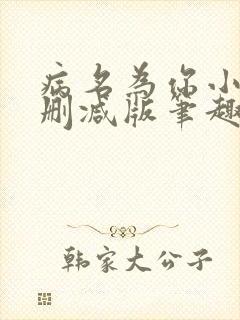 病名为你小
删减版笔趣
韩家大公子